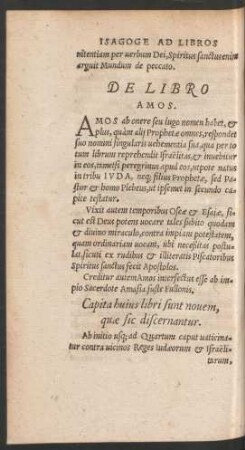 ISAGOGE AD LIBROS
nitentiam per uerbum Dei, Spiritus sanctus enim
arguit Mundum de peccato.
DE LIBRO
AMOS.
AMOS ab onere seu iugo nomen habet, &
plus, quàm alij Prophetæ omnes, respondet
suo nomini singularis uehementia sua, qua per to
tum librum reprehendit Israëlitas, & inuehitur
in eos, etsi peregrinus apud eos, utpote natus
in tribu IVDA, neq; filius Prophetæ, sed Pa
stor & homo Plebeius, ut ipsemet in secundo ca
pite testatur.
Vixit autem temporibus Oseæ & Esaiæ, si
cut est Deus potens uocare tales subito quodam
& diuino miraculo, contra impiam potestatem,
quam ordinariam uocant, ubi necesitas postu
lat, sicuti ex rudibus & illiteratis Piscatoribus
Spiritus sanctus fecit Apostolos.
Creditur autem Amos intersectus esse ab im
pio Sacerdote Amasia fuste Fullonis.
Capita huius libri sunt nouem,
quæ sic discernantur.
Ab initio usq; ad Quartum caput uaticina
tur contra uicinos Reges iudæorum & Israëli
tarum,